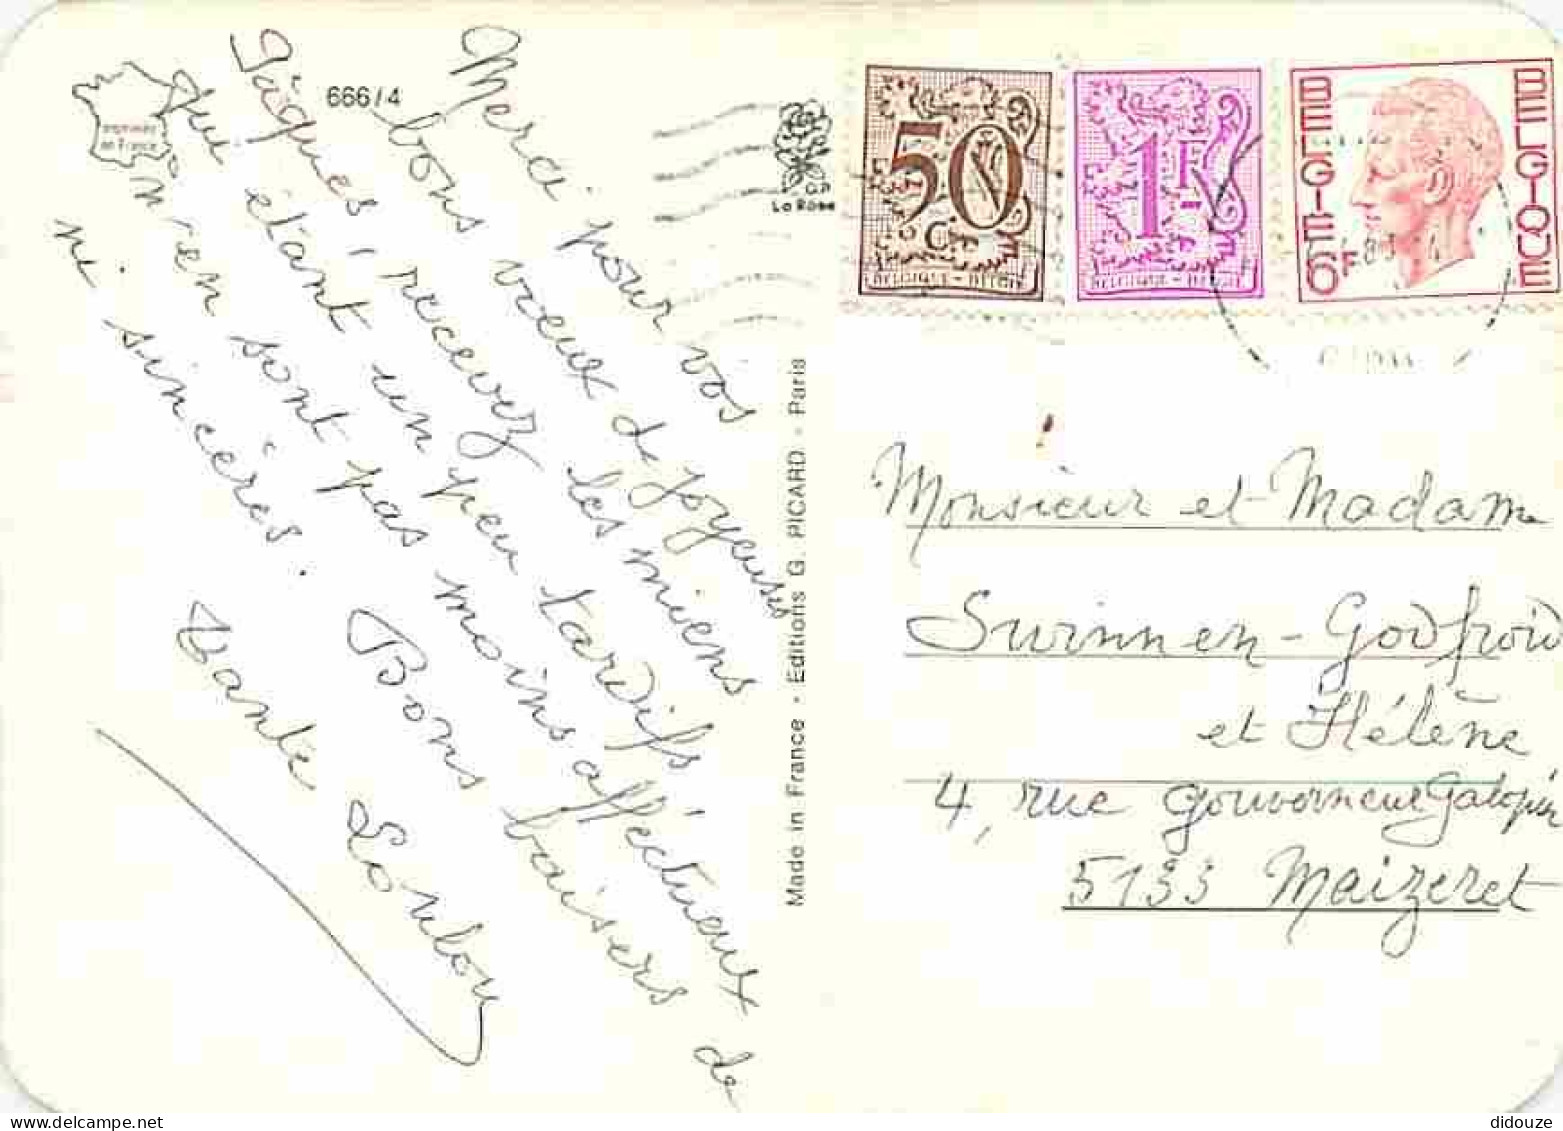 666/4
imprimée en France
G.P.
La Rose
Merci pour vos
bons vœux de joyeuses
Pâques, recevez les miens
que étant un peu tardifs
n'en sont pas moins affectueux
ni sincères. Bons baisers de
Tante Loulou
Made in France - Editions G. PICARD - Paris
50 c
BELGIQUE - BELGIË
1F
BELGIQUE - BELGIË
BELGIE
BELGIQUE
6F
Monsieur et Madame
Swinnen-Godfroid
et Hélène
4, rue Gouverneur Galopin
5133 Maizeret
didouze